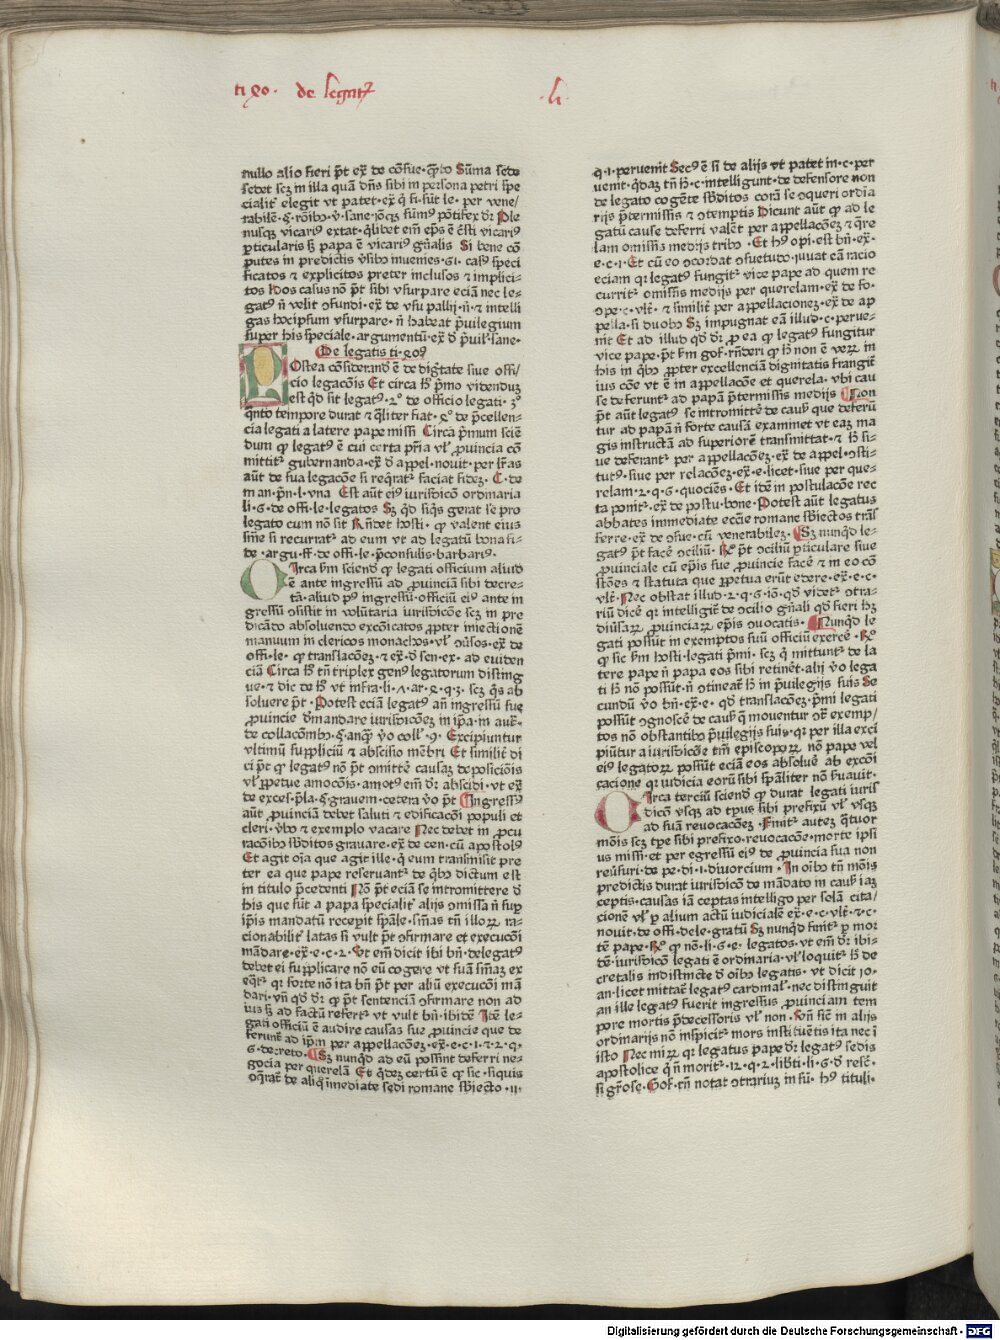 ti ꝯo · de legatꝫ
· li ·
nullo alio fieri p̄t ex̄ de cōsue· Sūma sede
sedet scꝫ in illa quā dn̄s sibi in persona petri spe
cialit̄ elegit vt patet·ex̄· per vene/
sumꝰ pōtifex dr̄ Ple
nusqꝫ vicariꝰ extat· q̄libet em̄ ep̄s ē vicariꝰ
ꝑticularis sꝫ papa ē vicariꝰ gn̄alis Si bene cō
putes in predictis v̄sibꝰ inuenies · casꝰ speci
ficatos ⁊ explicitos preter inclusos ⁊ implici-
tos Hos casus nō p̄t sibi vsurpare eciā nec le-
gatꝰ n̄ velit ꝯfundi·ex̄ de vsu pallij· ⁊ intelli
gas hocipsum vsurpare· n̄ habeat p̄uilegium
super his speciale·argumentū·ex̄ d̄ p̄uil·sane·
De legatis ti·
POstea cōsiderand̄ ē de dignitate siue offi/
cio legacōis Et circa hoc p̄mo videnduꝫ
est qd̄ sit legatꝰ·2º de officio legati·3º
q̄nto tempore durat ⁊ qualiter fiat· de p̄cellen-
cia legati a latere pape missi Circa p̄mum scien̄
dum ꝙ legatꝰ ē cui certa pr̄ia vl' ꝓuincia cō
mittit̄ gubernanda·ex̄ d̄ appel·nouit·per lr̄as
aūt de sua legacōe si reqͥrat̄ faciat fidez· C·de
man·pn̄·l·vna Est aūt eiꝰ iurisdicō ordinaria
li·6·de offi·le·legatos Sꝫ qd̄ siqͥs gerat se pro
legato cum nō sit Rn̄det hosti· ꝙ valent eius
sn̄ie si recurrat̄ ad eum vt ad legatū bona fi-
de·argu·ff·de offi·le·ꝓconsulis·barbariꝰ·
CIrca sciend̄ ꝙ legati officium aliud
ē ante ingressū ad ꝓuinciā sibi decre-
tā·aliud pꝰ ingressū·officiū eiꝰ ante in
gressū ꝯsistit in volūtaria iurisdicōe scꝫ in pre
dicādo absoluendo excōicatos ꝓpter iniectionē
manuum in clericos monachos·vl' ꝯuersos·ex̄ de
offi·le· ꝙ translacōeꝫ·⁊ ex̄ d̄ sen·ex· ad euiden
ciā Circa hoc tn̄ triplex genꝰ legatorum disting
ue·⁊ dic de hoc vt infra·li· ar· q·3· scꝫ qͥs ab
soluere p̄t· Potest eciā legatꝰ an̄ ingressū sue
ꝓuincie d̄mandare iurisdicōeꝫ in
Excipiuntur
vltimū suppliciū ⁊ abscisio mēbri Et similit̄ di
ci p̄t ꝙ legatꝰ nō p̄t ꝯmittē causaꝫ deposiciōis
vl' ꝑpetue amocōis·amotꝰ em̄ dr̄ abscidi·vt ex̄
de exces·p̄la· grauem·cetera p̄t Ingressꝰ
aūt ꝓuinciā debet saluti ⁊ edificacōi populi et
cleri·v̄bo ⁊ exemplo vacare Nec debet in ꝓcu
racōibꝰ sb̄ditos grauare·ex̄ de cen·cū apostolꝰ
Et agit oīa que agit ille· ꝗ eum transmisit pre
ter ea que pape reseruant̄ de qͥbꝰ dictum est
in titulo p̄cedenti Nō p̄t eciā se intromittere d̄
his que sūt a papa specialit̄ alijs ꝯmissa n̄ suꝑ
ip̄is mandatū receperit sp̄ale·sn̄ias tn̄ illoꝝ ra-
cionabilit̄ latas si vult p̄t ꝯfirmare et execucōi
mādare·ex̄·e·c·2· Et em̄ dicit ibi bn̄·delegatꝰ
debet ei supplicare nō eū cogere vt suā sn̄iaꝫ ex
eqͣt̄ qr forte nō ita bn̄ p̄t per aliū execucōi mā
dari·vn̄ qd̄ dr̄ ꝙ p̄t sentenciā ꝯfirmare non ad
ius sꝫ ad factū refert̄ vt vult bn̄·ibidē Itē le-
gati officiū ē audire causas sue ꝓuincie que de
ferunt̄ ad ip̄m per appellacōeꝫ·ex̄·e·c·1·2·q·
6·decreto· Sꝫ nunqd̄ ad eū possint deferri ne-
gocia per querelā Et qd̄eꝫ certū ē ꝙ sic·siquis
de aliqͦ īmediate sedi romane sb̄iecto·11·
q·1·peruenit Secꝰ ē si de alijs vt patet in·c·per
uenit·qd̄aꝫ tn̄ h̄·c·intelligunt·de defensore non
de legato cogēte sb̄ditos corā se ꝯqueri ordīa
rijs p̄termissis ⁊ ꝯtemptis Dicunt aūt ꝙ ad le
gatū cause deferri valēt per appellacōeꝫ ⁊ q̄re
lam omissis medijs tribꝰ· Et hꝰ opi·est bn̄·ex̄·
e·c·1·Et cū eo ꝯcordat ꝯsuetudo·iuuat eā racio
eciam qr legatꝰ fungit̄ vice pape ad quem re
currit̄ omissis medijs per querelam·ex̄ de fo·
ꝯpe·c·vlt̄·⁊ similit̄ per appellacionez·ex̄ de ap
pella·si duobꝰ Sꝫ impugnat eā illud·c·perue-
nit Et ad illud qd̄ dr̄ ꝓ ea ꝙ legatꝰ fungitur
vice pape·p̄t sm̄ gof·rn̄deri ꝙ hoc non ē veꝝ in
his in qͥbꝰ ꝓpter excellenciā dignitatis frangit̄
ius cōe vt ē in appellacōe et querela·vbi cau
se deferunt̄ ad papā p̄termissis medijs Non
p̄t aūt legatꝰ se intromittē de causꝭ que deferū
tur ad papā n̄ forte causā examinet vt eaꝫ ma
gis instructā ad superiorē transmittat·⁊ hoc si-
ue deferant̄ per appellacōeꝫ·ex̄ de appel·ꝯsti-
tutꝰ·siue per relacōeꝫ·ex̄·e·licet·siue per que-
relam·2·q·6·quociēs· Et idē in postulacōe rec
ta ponit̄·ex̄ de postu·bone·Potest aūt legatus
abbates immediate eccīe romane sb̄iectos trāſ
ferre·ex̄ de ꝯsue·cū venerabileꝫ· Sꝫ nunqd̄ le-
gatꝰ p̄t facē ꝯciliū· Rº p̄t ꝯciliū ꝑticulare siue
ꝓuinciale cū ep̄is sue ꝓuincie facē ⁊ in eo cō
stōes ⁊ statuta que ꝑpetua erūt edere·ex̄·e·c·
vlt̄· Nec obstat illud·2·q·6·iō·qd̄ videt̄ ꝯtra-
riū dicē qr intelligit̄ de ꝯcilio gn̄ali qd̄ fieri hꝫ
diūsaꝝ ꝓuinciaꝝ ep̄is ꝯuocatis· Nunqd̄ le
gati possūt in exemptos suū officiū exercē· Rº
ꝙ sic sm̄ hosti·legati p̄mi· scꝫ ꝗ mittunt̄ de la
tere pape n̄ papa eos sibi retinēt·alij v̄o lega
ti hoc nō possūt·n̄ ꝯtineat̄ hoc in p̄uilegijs suis Se
cundū v̄o bn̄·ex̄·e· qd̄ translacōeꝫ·p̄mi legati
possūt ꝯgnoscē de causꝭ q̄ mouentur ꝯtra exemp/
tos nō obstantibꝰ p̄uilegijs suis·qr per illa exci
piūtur a iurisdicōe tm̄ episcoporꝝ nō pape vel
eiꝰ legatorꝝ possūt eciā eos absoluē ab excōi
cacione qr iudicia eorū sibi sp̄aliter nō
CIrca terciū sciend̄ ꝙ durat legati iuris
dicō vsqꝫ ad tp̄us sibi prefixū vl' vsqꝫ
ad suā reuocacōeꝫ· Finit̄ auteꝫ qͣtuor
mōis scꝫ tp̄e sibi prefixo·reuocacōe·morte ipsi
us missi·et per egressū eiꝰ de ꝓuincia sua non
reūsuri·de pe·di·1·diuorcium· In oībꝰ tn̄ mōis
predictis durat iurisdicō de mādato in causꝭ iaꝫ
ceptis·causas iā ceptas intelligo per solā cita/
cionē vl' ꝑ alium actū iudicialē ex̄·e·c·vlt̄·⁊·c·
nouit·de offi·dele·gratū Sꝫ nunqd̄ finit̄ ꝑ mor
tē pape· Rº ꝙ nō·li·6·e· legatos·vt em̄ dr̄ ibi-
dē·iurisdicō legati ē ordinaria·vl' loquit̄ hoc de
cretalis indistincte d̄ oībꝰ legatis·vt dicit io·
an·licet mittat̄ legatꝰ cardinal'·nec distinguit
an ille legatꝰ fuerit ingressus ꝓuinciam tem
pore mortis p̄decessoris vl' non· in alijs
ordinarijs nō inspicit̄ mors instituētis ita nec ī
isto Nec miꝝ qr legatus pape dr̄ legatꝰ sedis
apostolice q̄ n̄ morit̄·12·q·2·libti·li·6·d̄ resc̄·
si gr̄ose· Gof·tn̄ notat ꝯtrariuꝫ in sū· hꝰ tituli·
Digitalisierung gefördert durch die Deutsche Forschungsgemeinschaft - DFG